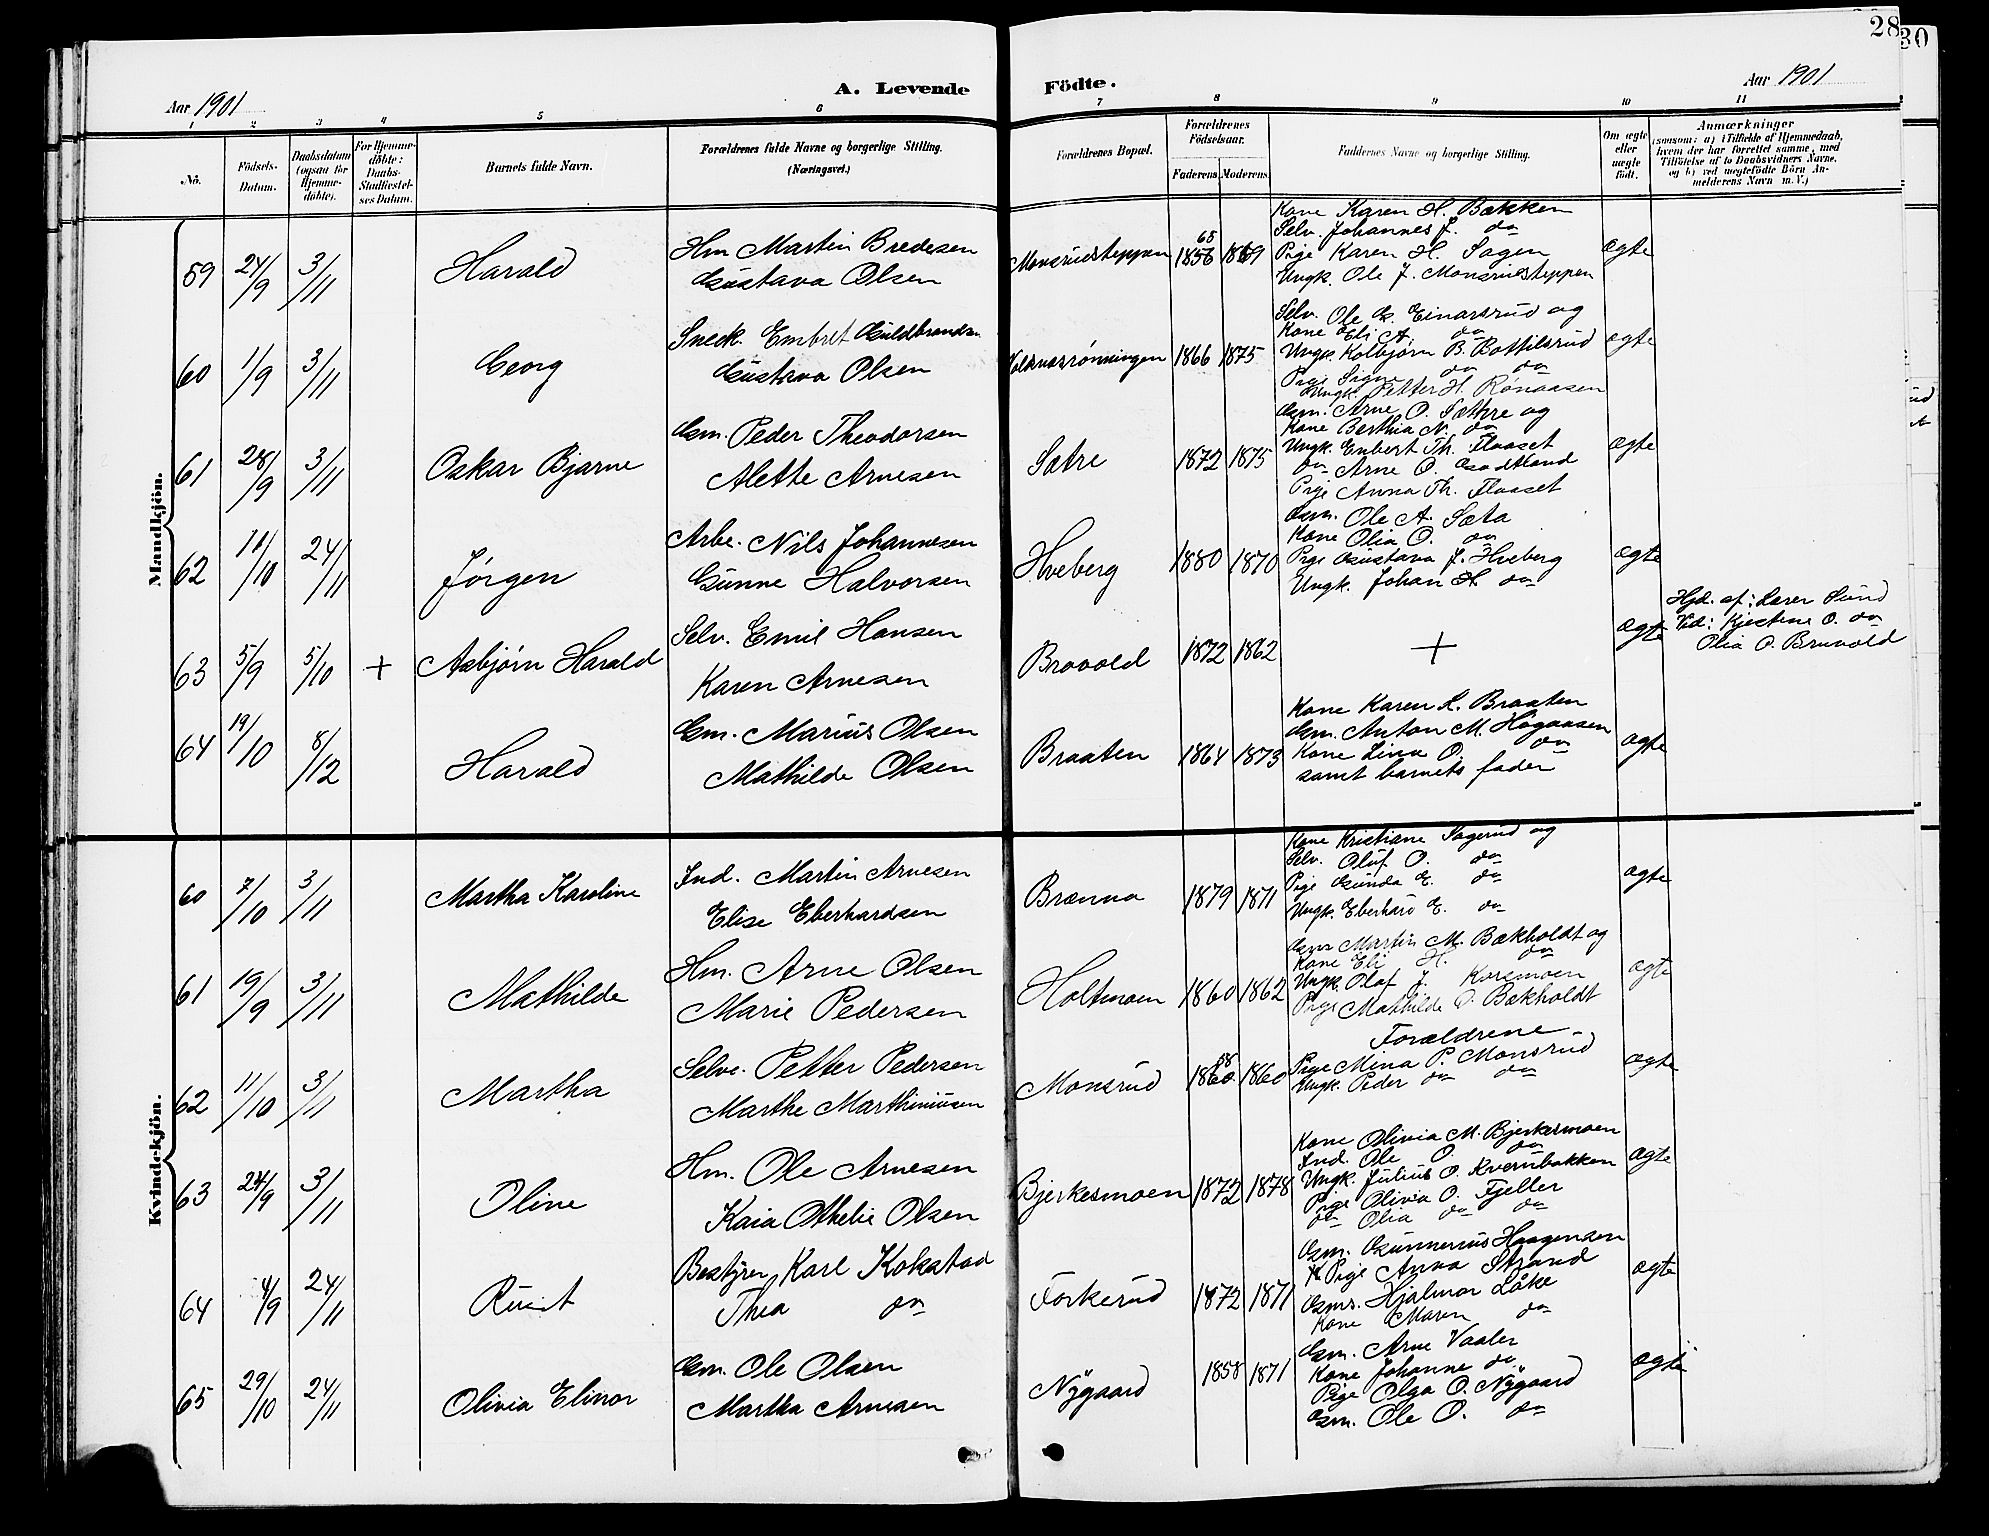 28
30
Aar 1901
A. Levende Födte.
Aar 1901
1 2 3 4 5 6 7 8 9 10 11
No.
Födsels-Datum.
Daabsdatum (ogsaa for Hjemme-döbte).
For Hjemme-döbte: Daabs-Stadfæstel-ses Datum.
Barnets fulde Navn.
Forældrenes fulde Navne og borgerlige Stilling. (Næringsvei.)
Forældrenes Bopæl.
Forældrenes Födselsaar.
Faderens Moderens.
Faddernes Navne og borgerlige Stilling.
Om ægte eller uægte født.
Anmærkninger
(saasom: a) i Tilfælde af Hjemmedaab, hvem der har forrettet samme, med Tilföielse af to Daabsvidners Navne, og b) ved uegtefödte Börn An-melderens Navn m. V.)
Mandkjön.
59 24/9 3/11 Harald
Hm Martin Bredesen
Gustava Olsen
Monsrudsteppen 1856 68 1869
Kone Karen H. Bækken
Selv. Johannes J. do
Pige Karen H. Sagen
Ungk. Ole J. Monsrudsteppen
ægte
60 1/9 3/11 Georg
Sneck. Embret Guldbrandsn
Gustava Olsen
1866 1875
Selv. Ole G. Einarsrud og
Kone Eli A. do
Ungk. Kolbjørn B. Bottilsrud
Pige Signe do do
Ungk. Petter H. Rönaasen
ægte
61 28/9 3/11 Oskar Bjarne
Gm. Peder Theodorsen
Alette Arnesen
Sætre 1872 1875
Gm. Arne O. Sæthre og
Kone Berthia N. do
Ungk. Enbert Th. Flaaset
do Arne O.
Pige Anna Th. Flaaset
ægte
62 11/10 24/11 Jörgen
Arbe. Nils Johannesen
Gunne Halvorsen
Hveberg 1880 1870
Gm. Ole A. Sæta
Kone Olia O. do
Pige Gustava J. Hveberg
Ungk. Johan H. do
ægte
63 5/9 5/10 + Asbjørn Harald
Selv. Emil Hansen
Karen Arnesen
Brovold 1872 1862
+
ægte
Hjd. af: Lærer Sund
Vid: Kjestine O. do
Olia O. Bruvold
64 19/10 8/12 Harald
Gm. Marius Olsen
Mathilde Olsen
Braaten 1864 1873
Kone Karen L. Braaten
Gm. Anton M. Högaasen
Kone Lina O. do
samt barnets fader
ægte
Kvindekjön.
60 7/10 3/11 Martha Karoline
Ind. Martin Arnesen
Elise Eberhardsen
Brænna 1879 1871
Kone Kristiane Sagerud og
Selv. Oluf O. do
Pige Gunda E. do
Ungk. Eberhard E. do
ægte
61 19/9 3/11 Mathilde
Hm. Arne Olsen
Marie Pedersen
Holtmoen 1860 1862
Gm Martin M. Bækholdt og
Kone Eli H. do
Ungk. Olaf J. Korsmoen
Pige Mathilde O. Bækholdt
ægte
62 11/10 3/11 Martha
Selve. Petter Pedersen
Marthe Marthiniusen
Monsrud 1860 58 1860
Forældrene
Pige Mina P. Monsrud
Ungk. Peder do do
ægte
63 24/9 3/11 Oline
Hm. Ole Arnesen
Kaia Othelie Olsen
Bjerkesmoen 1872 1878
Kone Olivia M. Bjerkesmoen
Ind. Ole O. do
Ungk. Julius O. Kværnbakken
Pige Olivia O. Fjeller
do Olia do do
ægte
64 4/9 24/11
Bestyrer Karl Kokstad
Thea do
Forkerud 1872 1871
Gm. Gunnerius Haagensen
Pige Anna Strand
Gm. Hjalmar Låke
Kone Maren do
ægte
65 29/10 24/11 Olivia Elinor
Gm. Ole Olsen
Martha Arnesen
Nygaard 1858 1871
Gm. Arne Vaaler
Kone Johanne do
Pige Olga O. Nygaard
Gm. Ole O. do
ægte